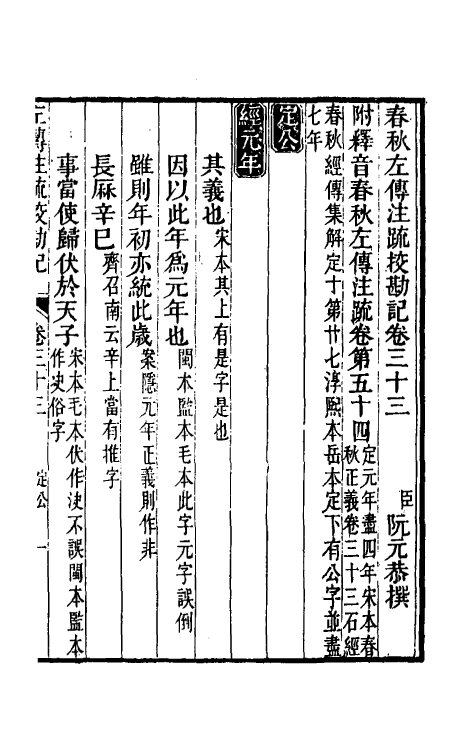 春秋左傳注疏挍勘記卷三十三 臣阮元恭撰
附釋音春秋左傳注疏卷第五十四 定元年盡四年宋本春
秋正義卷三十三石經
春秋經傳集解定十第廿七淳熙本岳本定下有公字並盡
七年
定公
經元年
其義也 宋本其上有是字是也
因以此年爲元年也 閩本監本毛本此字元字誤倒
雖則年初亦統此歲 案隱元年正義則作非
長厤辛巳 齊召南云辛上當有推字
事當使歸伏於天子 宋本毛本伏作決不誤閩本監本
作决俗字
左傳注疏挍勘記 卷三十三 定公 一